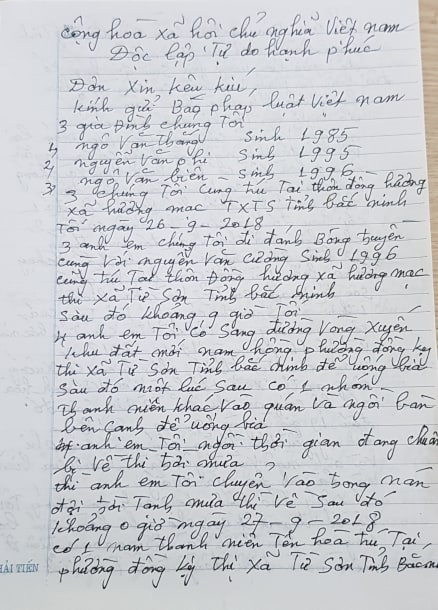 cộng hoà xã hội chủ nghĩa Việt nam
Độc lập Tự do hạnh phúc
Đơn xin kêu kiu,
kính gửi Báo pháp luật Việt nam
3 gia Đình chúng Tôi
1, ngô Văn thắng sinh 1985
2, nguyễn Văn phi sinh 1995
3, ngô Văn biển - sinh 1996
3 chúng Tôi cung trú Tại thôn đông hương
xã hương mạc TXTS Tỉnh bắc ninh
Tối ngày 26-9-2018
3 anh em chúng Tôi đi đánh Bóng truyền
cùng Với nguyễn Văn cường Sinh 1996
cùng trú Tại thôn Đông hương xã hương mạc
thị xã Từ Sơn Tỉnh bắc ninh
Sau đó khoảng 9 giờ Tối
4 anh em Tôi có sang đường Vòng xuyên
khu đất mới nam hồng phường đồng kỵ
thị xã Từ Sơn Tỉnh bắc ninh để uống bia
Sau đó một lúc sau có 1 nhóm
Thanh niên khác Vào quán Và ngồi bàn
bên cạnh để uống bia
anh em Tôi ngồi thời gian đang chuẩn
bị Về thì trời mưa
thì anh em Tôi chuyển Vào trong
đợi trời Tạnh mưa thì Về Sau đó
khoảng 0 giờ ngày 27-9-2018
có 1 nam thanh niên Tên hoa trú Tại
phường đồng kỵ thị xã Từ Sơn Tỉnh Bắc
HẢI TIẾN